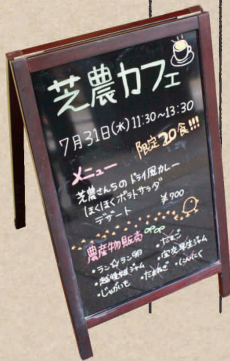 芝農カフェ
7月31日(水)11:30~13:30
限定20食!!!
メニュー
芝農さんちのドライ風カレー
ほくほくポテトサラダ
デザート ¥700
農産物販売
・ランラン卵 ・たまご
・越姫娘ジャム
・じゃがいも ・たまねぎ ・にんにく